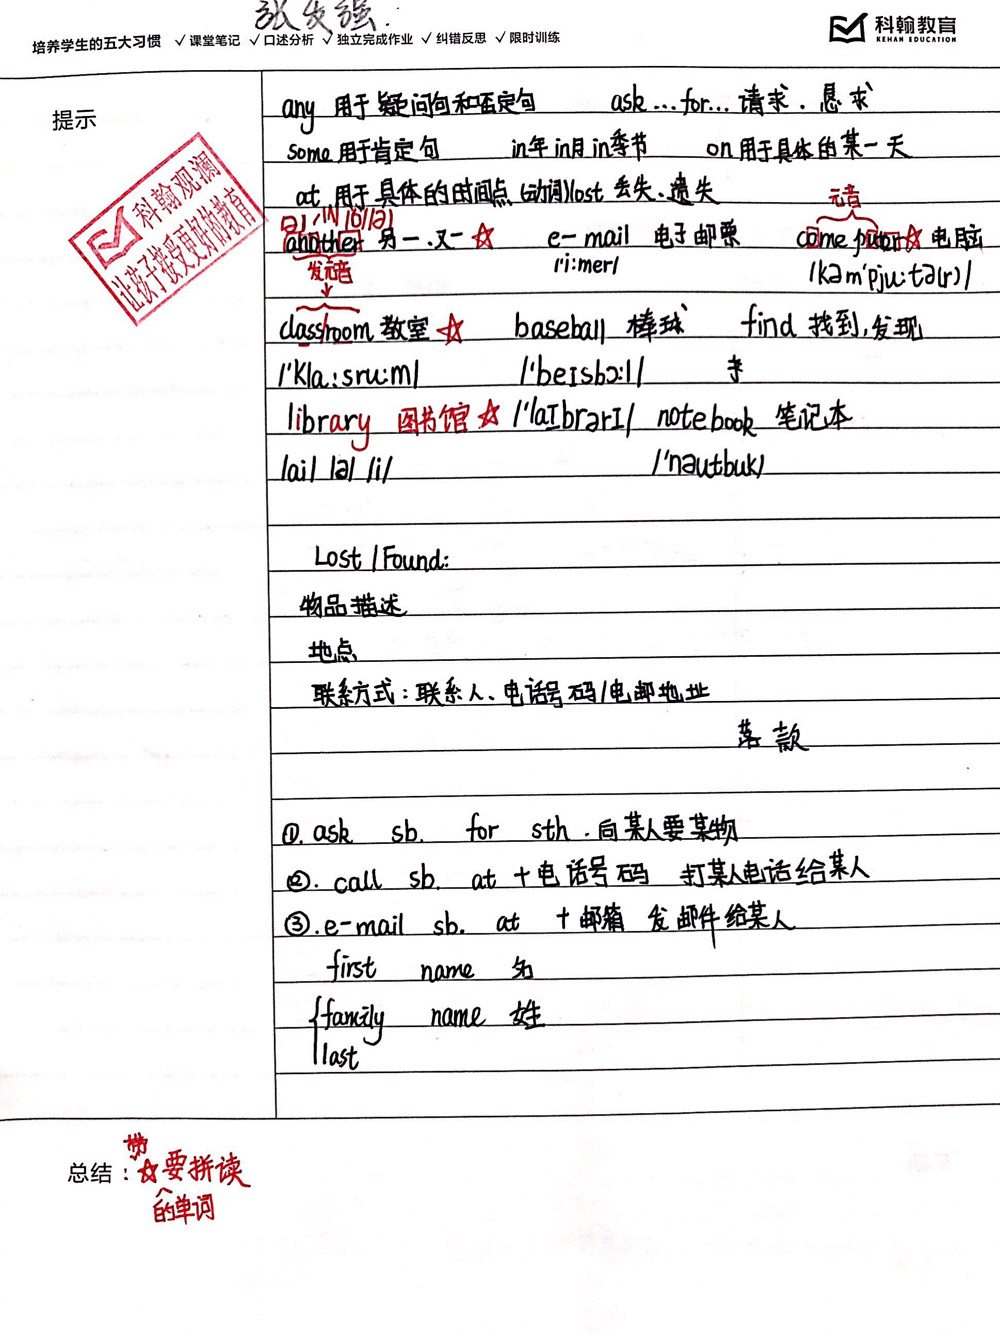 张发强.
培养学生的五大习惯 √课堂笔记 √口述分析 √独立完成作业 √纠错反思 √限时训练
科翰教育
KEHAN EDUCATION
提示
科翰观澜
让孩子接受更好的教育
any 用于疑问句和否定句 ask...for... 请求.恳求
some 用于肯定句 in年 in月 in季节 on用于具体的某一天
at 用于具体的时间点 (动词)lost 丢失.遗失
元音
another 另一.又一☆ e-mail 电子邮票 come puter☆ 电脑
发元音 /'i:mer/ /kəm'pju:tə(r)/
classroom 教室☆ baseball 棒球 find 找到,发现
/'kla:sru:m/ /'beɪsbɔ:l/
library 图书馆☆ /'laɪbrərɪ/ notebook 笔记本
/ai/ /ə/ /i/ /'nəutbuk/
Lost/Found:
物品描述
地点
联系方式:联系人、电话号码/电邮地址
落款
①.ask sb. for sth.向某人要某物
②.call sb. at +电话号码 打某人电话给某人
③.e-mail sb. at +邮箱 发邮件给某人
first name 名
{family name 姓
last
总结:☆要拼读
的单词